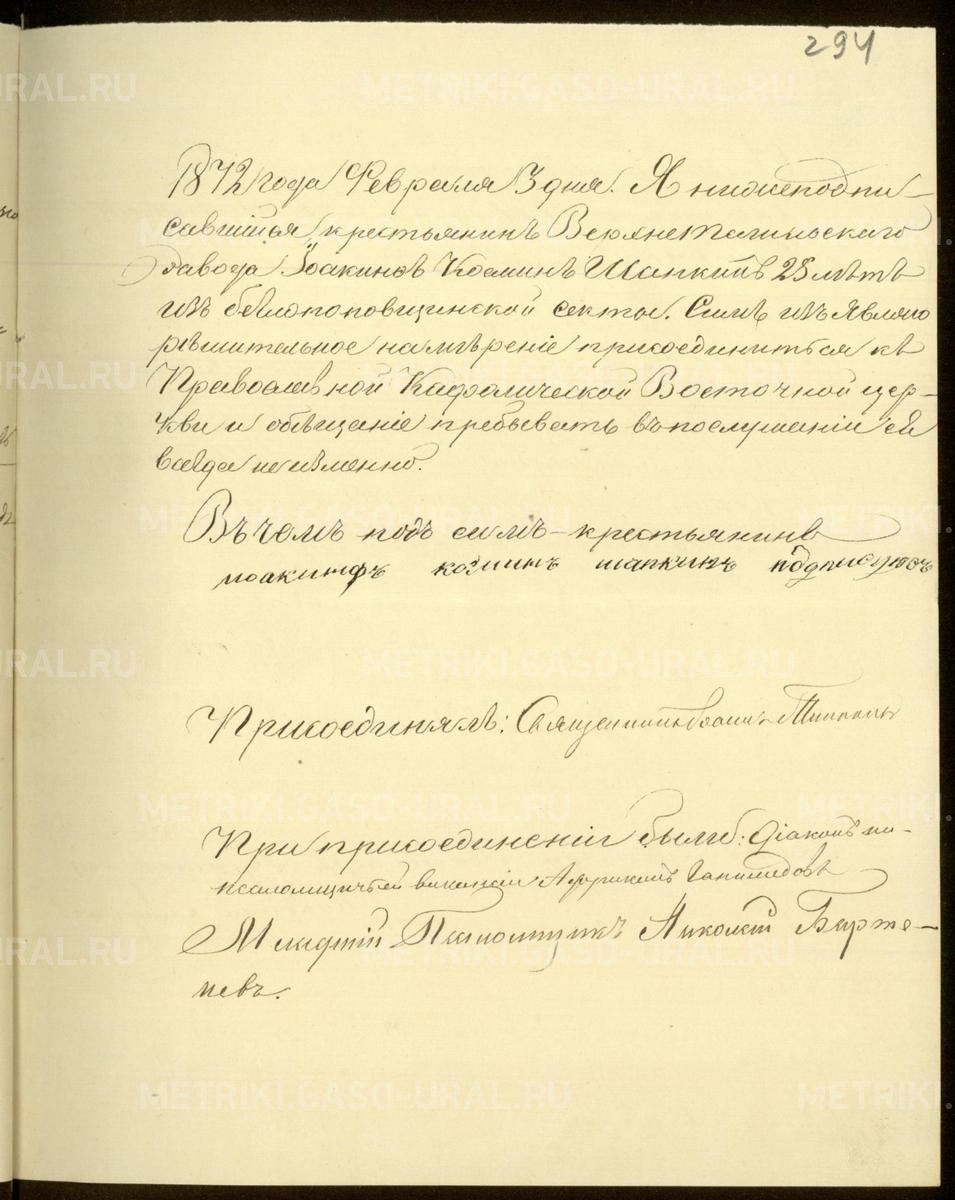 294
1872 года Февраля 3 дня. Я нижеподпи-
савшійся, крестьянинъ Верхнетагильскаго
завода Іоакинѳъ Козминъ Шапкинъ 25 лѣтъ
изъ бѣлопоповщинской секты. Симъ изъявляю
рѣшительное намѣреніе присоединиться къ
Православной Каѳолической Восточной цер-
кви и обѣщаніе пребывать въ послушаніи ей
всегда неизмѣнно.
Въ чемъ подъ симъ - крестьянинъ
иоакинфъ козминъ шапкинъ подписуюсъ
Присоединялъ: Священникъ Іоаннъ
При присоединеніи были: Діаконъ на
псаломщичьей вакансіи Африканъ Ганимедовъ
Младшій Псаломщикъ Николай Барте-
невъ.
METRIKI.GASO-URAL.RU